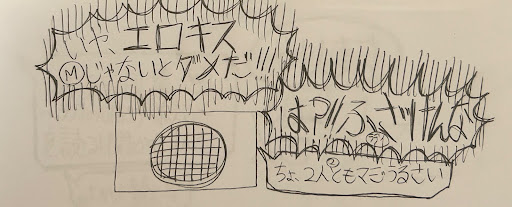 いや、エロキス
Ⓜじゃないとダメだ!!!
は?!!ふっざけんな
ちょ、2人ともマジうるさい